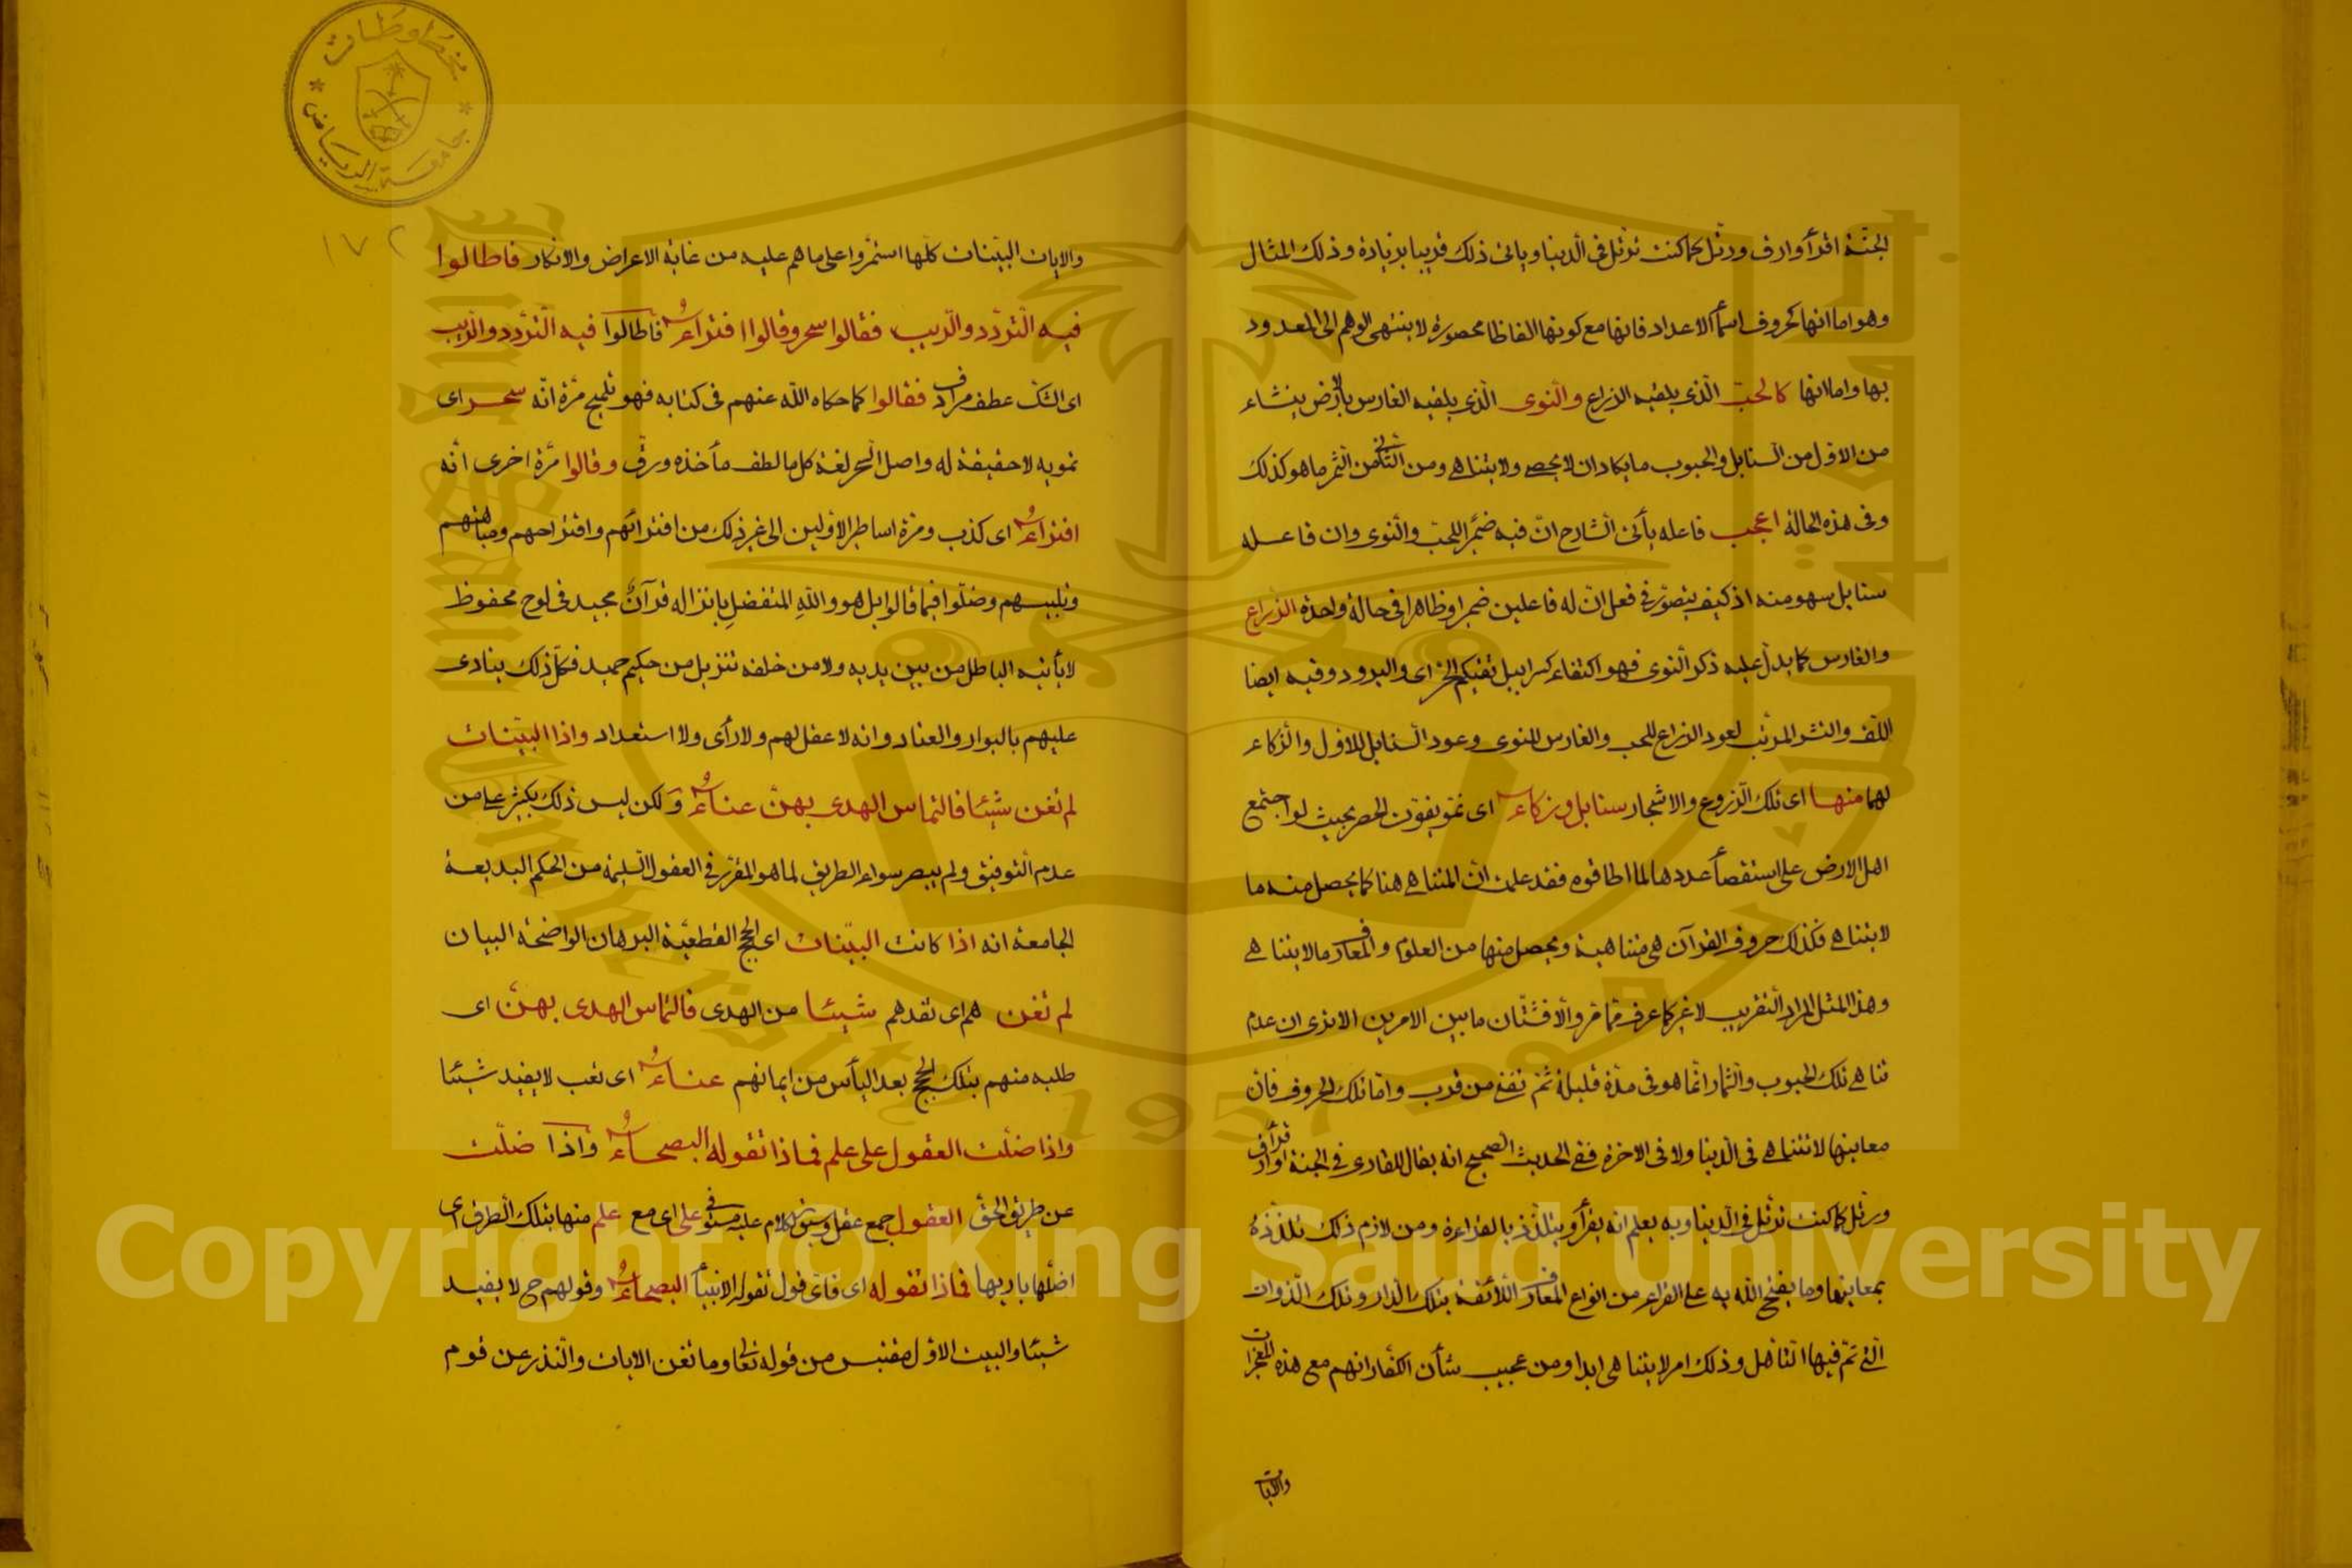 الجنة اقرأ وارق ورتل كما كنت ترتل في الدنيا ويأتي ذلك قريبا بزيادة وذلك المثال
وهو اما انها كحروف اسمأ الاعداد فانها مع كونها الفاظا محصورة لا ينتهى الوهم الى المعدود
بها واما انها كالحبّ الّذى يلقيه الزراع والنّوى الّذى يلقيه الغارس بالارض ينشاء
من الاول من السنابل والحبوب ما يكاد ان لا يحصى ولا يتناهى ومن الثانى من الثمر ما هو كذلك
وفى هذه الحالة اعجب فاعله يأتى الشارح انّ فيه ضمير اللحبّ والنوى وان فاعله
سنابل سهو منه اذ كيف يتصور فى فعل انّ له فاعلين ضميرا وظاهرا فى حالة واحدة الزراع
والغارس كما يدل عليه ذكر النوى فهو اكتفاء كسرابيل تقيكم الحرّ اى والبرد وفيه ايضا
اللف والنشر المرتب لعود الزراع للحب والغارس للنوى وعود السنابل للاول والزكاء
لهما منها اى تلك الزروع والاشجار سنابل وزكاء اى نمو يفوت الحصر بحيث لو اجتمع
اهل الارض على استقصأ عددها لما اطاقوه فقد علمت انّ المتناهى هنا كما يحصل منه ما
لا يتناهى فكذلك حروف القرآن هى متناهية ويحصل منها من العلوم والمعارف ما لا يتناهى
وهذا المثل المراد التقريب لا غير كما عرف مما مرّ والا فشتّان ما بين الامرين الا ترى ان عدم
تناهى تلك الحبوب والثمار انما هو فى مدة قليلة ثم تفنى من قرب واما تلك الحروف فانّ
معانيها لا تتناهى فى الدنيا ولا فى الاخرة ففى الحديث الصحيح انه يقال للقارى فى الجنة اقرأ وارق
ورتل كما كنت ترتل فى الدنيا وبه يعلم انه يقرأ ويتلذذ بالقراءة ومن لازم ذلك تلذذه
بمعانيها وما يفتح الله به على القراء من انواع المعارف اللائقة بتلك الدار وتلك الذوات
التى تم فيها التاهل وذلك امر لا يتناهى ابدا ومن عجيب شأن الكفار انهم مع هذه المعجزات
والايات
مخطوطات
جامعة الرياض
١٧٢
والايات البيّنات كلّها استمروا على ما هم عليه من غاية الاعراض والانكار فاطالوا
فيه التّردّد والرّيب فقالوا سحر وقالوا افتراء فأطالوا فيه التّردد والرّيب
اى الشك عطف مرادف فقالوا كما حكاه الله عنهم فى كتابه فهو تلميح مرّة انّه سحر اى
تمويه لا حقيقة له واصل السحر لغة كل ما لطف مأخذه ورقّ وقالوا مرّة اخرى انّه
افتراء اى كذب ومرة اساطير الاولين الى غير ذلك من افترائهم واقتراحهم ومباهتهم
وتلبيسهم وضلّوا فيما قالوا بل هو والله المتفضل بانزاله قرآن مجيد فى لوح محفوظ
لا يأتيه الباطل من بين يديه ولا من خلفه تنزيل من حكيم حميد فكلّ ذلك ينادى
عليهم بالبوار والعناد وانه لا عقل لهم ولا رأى ولا استعداد واذا البيّنات
لم تغن شيئا فالتماس الهدى بهنّ عناء ولكن ليس ذلك بكثير على من
عدم التوفيق ولم يبصر سواء الطريق لما هو المقرّر فى العقول السّليمة من الحكم البديعة
الجامعة انه اذا كانت البيّنات اى الحجج القطعيّة البرهان الواضحة البيان
لم تغن هم اى تفدهم شيئا من الهدى فالتماس الهدى بهنّ اى
طلبه منهم بتلك الحجج بعد اليأس من ايمانهم عناء اى تعب لا يفيد شيئا
واذا ضلّت العقول على علم فماذا تقوله البصحاء واذا ضلّت
عن طريق الحق العقول جمع عقل وسبق الكلام عليه مستوفى على اى مع علم منها بتلك الطرق اى
اضلّها باريها فماذا تقوله اى فأىّ قول تقوله الانبيأ البصحاء وقولهم ح لا يفيد
شيئا والبيت الاول مقتبس من قوله تعالى وما تغن الايات والنذر عن قوم
Copyright © King Saud University
King Saud University
1957